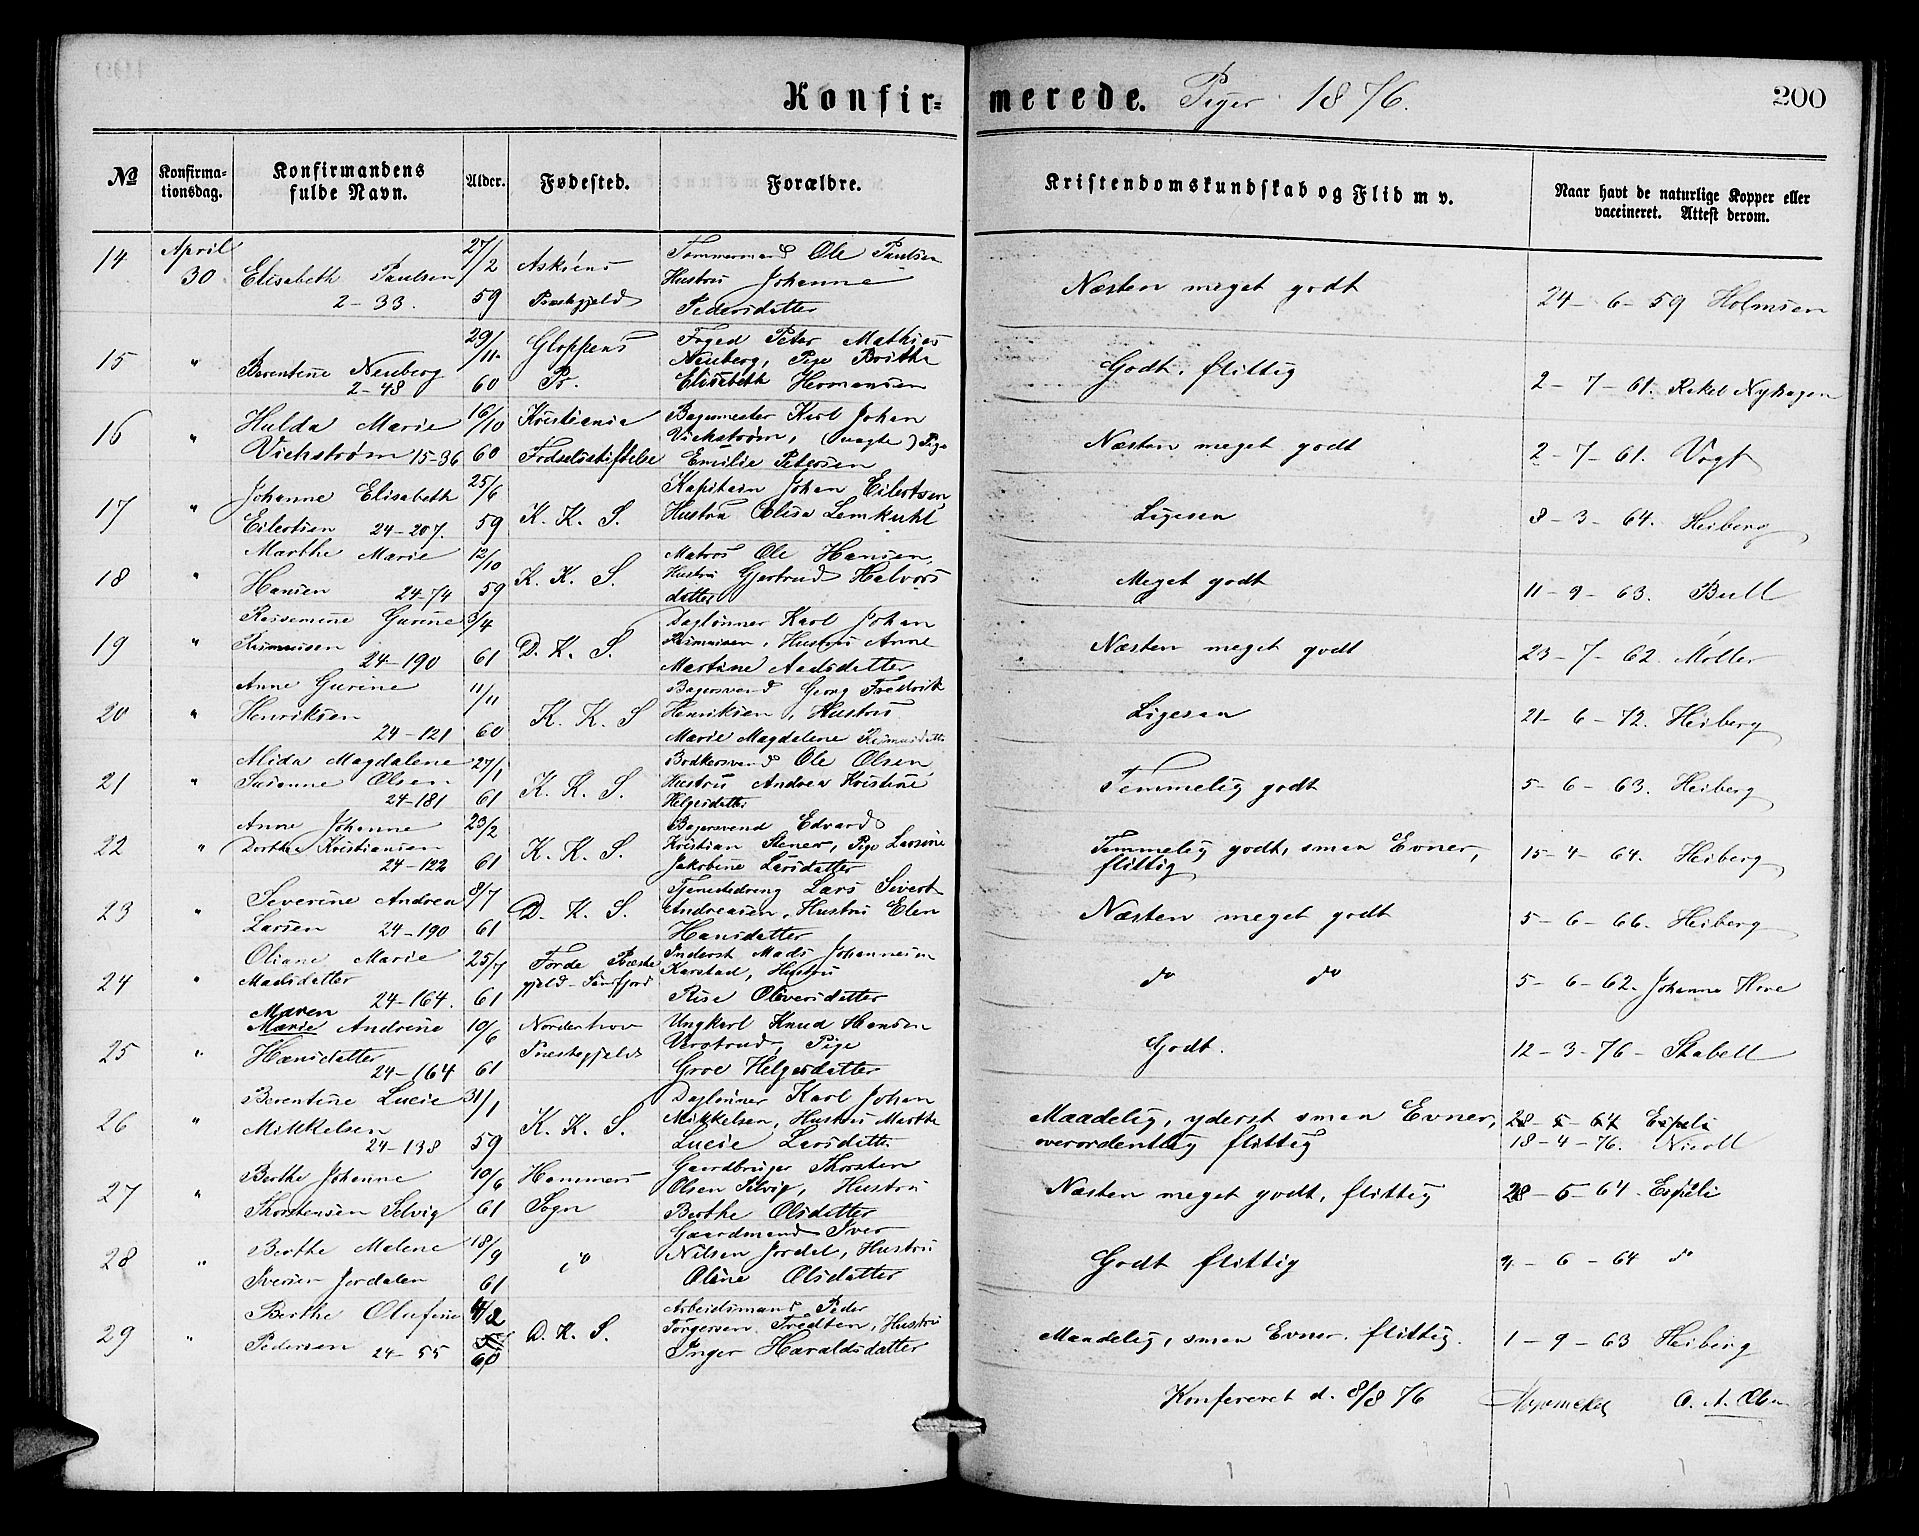 Konfir-merede. Piger 1876. 200
No Konfirma-tionsdag. Konfirmandens fulde Navn. Alder. Fødested. Forældre. Kristendomskundskab og Flid m v. Naar havt de naturlige Kopper eller vaccineret. Attest derom.
14 April 27/2 Tømmermand Ole Paulsen
30 Elisabeth Paulsen Askøens Hustru Johanne Næsten meget godt
2-33. 59 Præstegjeld Pedersdatter 24-6-59 Holmsen
29/11 Gloppens Foged Peter Mathias
15 " Berentine Neuberg Neuberg, Pige Brithe Godt, flittig
2-48 60 Pr. Elisabeth Hermansen 2-7-61. Rakel Nyhagen
Hulda Marie 16/10 Kristiania Bagermester Karl Johan
16 " Vickstrøm, (uægte) Pige Næsten meget godt
Vickstrøm 15-36 60 Fødselsstiftelse Emilie Petersen 2-7-61. Vogt
Johanne Elisabeth 25/6 Kaptain Johan Eilertsen
17 " Eilertsen 24-207. 59 K. K. S. Hustru Elisa Lemkuhl Ligesaa 8-3-64. Heiberg
Marthe Marie 12/10 Matros Ole Hansen,
18 " K. K. S. Hustru Gjertrud Halvors Meget godt
Hansen 24-74 59 datter 11-9-63. Bull
Rasmine Gurine 3/4 Daglønner Karl Johan
19 " Rasmusen D. K. S. Rasmusen, Hustru Anne Næsten meget godt
24-190 61 Martine Aadsdatter 23-7-62. Møller
Anne Gurine 11/11 Bagersvend Georg Fredrik
20 " Henriksen K. K. S Henriksen, Hustru Ligesaa 21-6-72. Heiberg
24-121 60 Marie Magdalene Rasmusdatter
Alida Magdalene 27/1 Bødkersvend Ole Olsen
21 " Susanne Olsen K. K. S. Hustru Andrea Kristine Temmelig godt 5-6-63. Heiberg
24-181 61 Helgesdatter
Anne Johanne 23/2 Bagersvend Edvard
22 " Dorthe Kristiansen K. K. S. Kristian Stener, Pige Larsine Temmelig godt, smaa Evner, 15-4-64. Heiberg
24-122 61 Jakobine Larsdatter flittig
Severine Andrea 8/7 Tjenestedreng Lars Sivert
23 " D. K. S. Andreasen, Hustru Elen Næsten meget godt 5-6-66. Heiberg
Larsen 24-190 61 Hansdatter
Oliane Marie 25/7 Førde Præste Inderst Mads Johannesen
24 " Madsdatter gjeld - Søndfjord Karstad, Hustru do do 5-6-62. Johanne Hove
24-164. 61 Rise Oliversdatter
Maren
Marie Andrine 10/6 Norderhov Ungkarl Knud Hansen
25 " Hansdatter Præstegjeld Pige Godt. 12-3-76- Stabell
24-164 61 Groe Helgesdatter
Berentine Lucie 31/1 Daglønner Karl Johan
26 " Mikkelsen K. K. S. Mikkelsen, Hustru Marthe Maadelig, yderst smaa Evner, 28-5-64 Espeli
24-138 59 Lucie Larsdatter overordentlig flittig 18-4-76. Nicoll
Berthe Johanne 10/6 Hammers Gaardbruger Thorsten
27 " Olsen Selvig, Hustru Næsten meget godt, flittig 28-5-64. Espeli
Thorstensen Selvig 61 Sogn Berthe Olsdatter
Berthe Malene 18/9 Gaardmand Iver
28 " do Nilsen Jordal, Hustru Godt flittig 9-6-64 do
Iversen Jordalen 61 Oline Olsdatter
Berthe Olufine 4/2 Arbeidsmand Peder
29 " D. K. S. Torgersen Tredten, Hustru Maadelig, smaa Evner. flittig. 1-9-63 Heiberg
Pedersen 24-55 60 Inger Haraldsdatter
Konfereret d. 8/8 76 O. A. Olsen